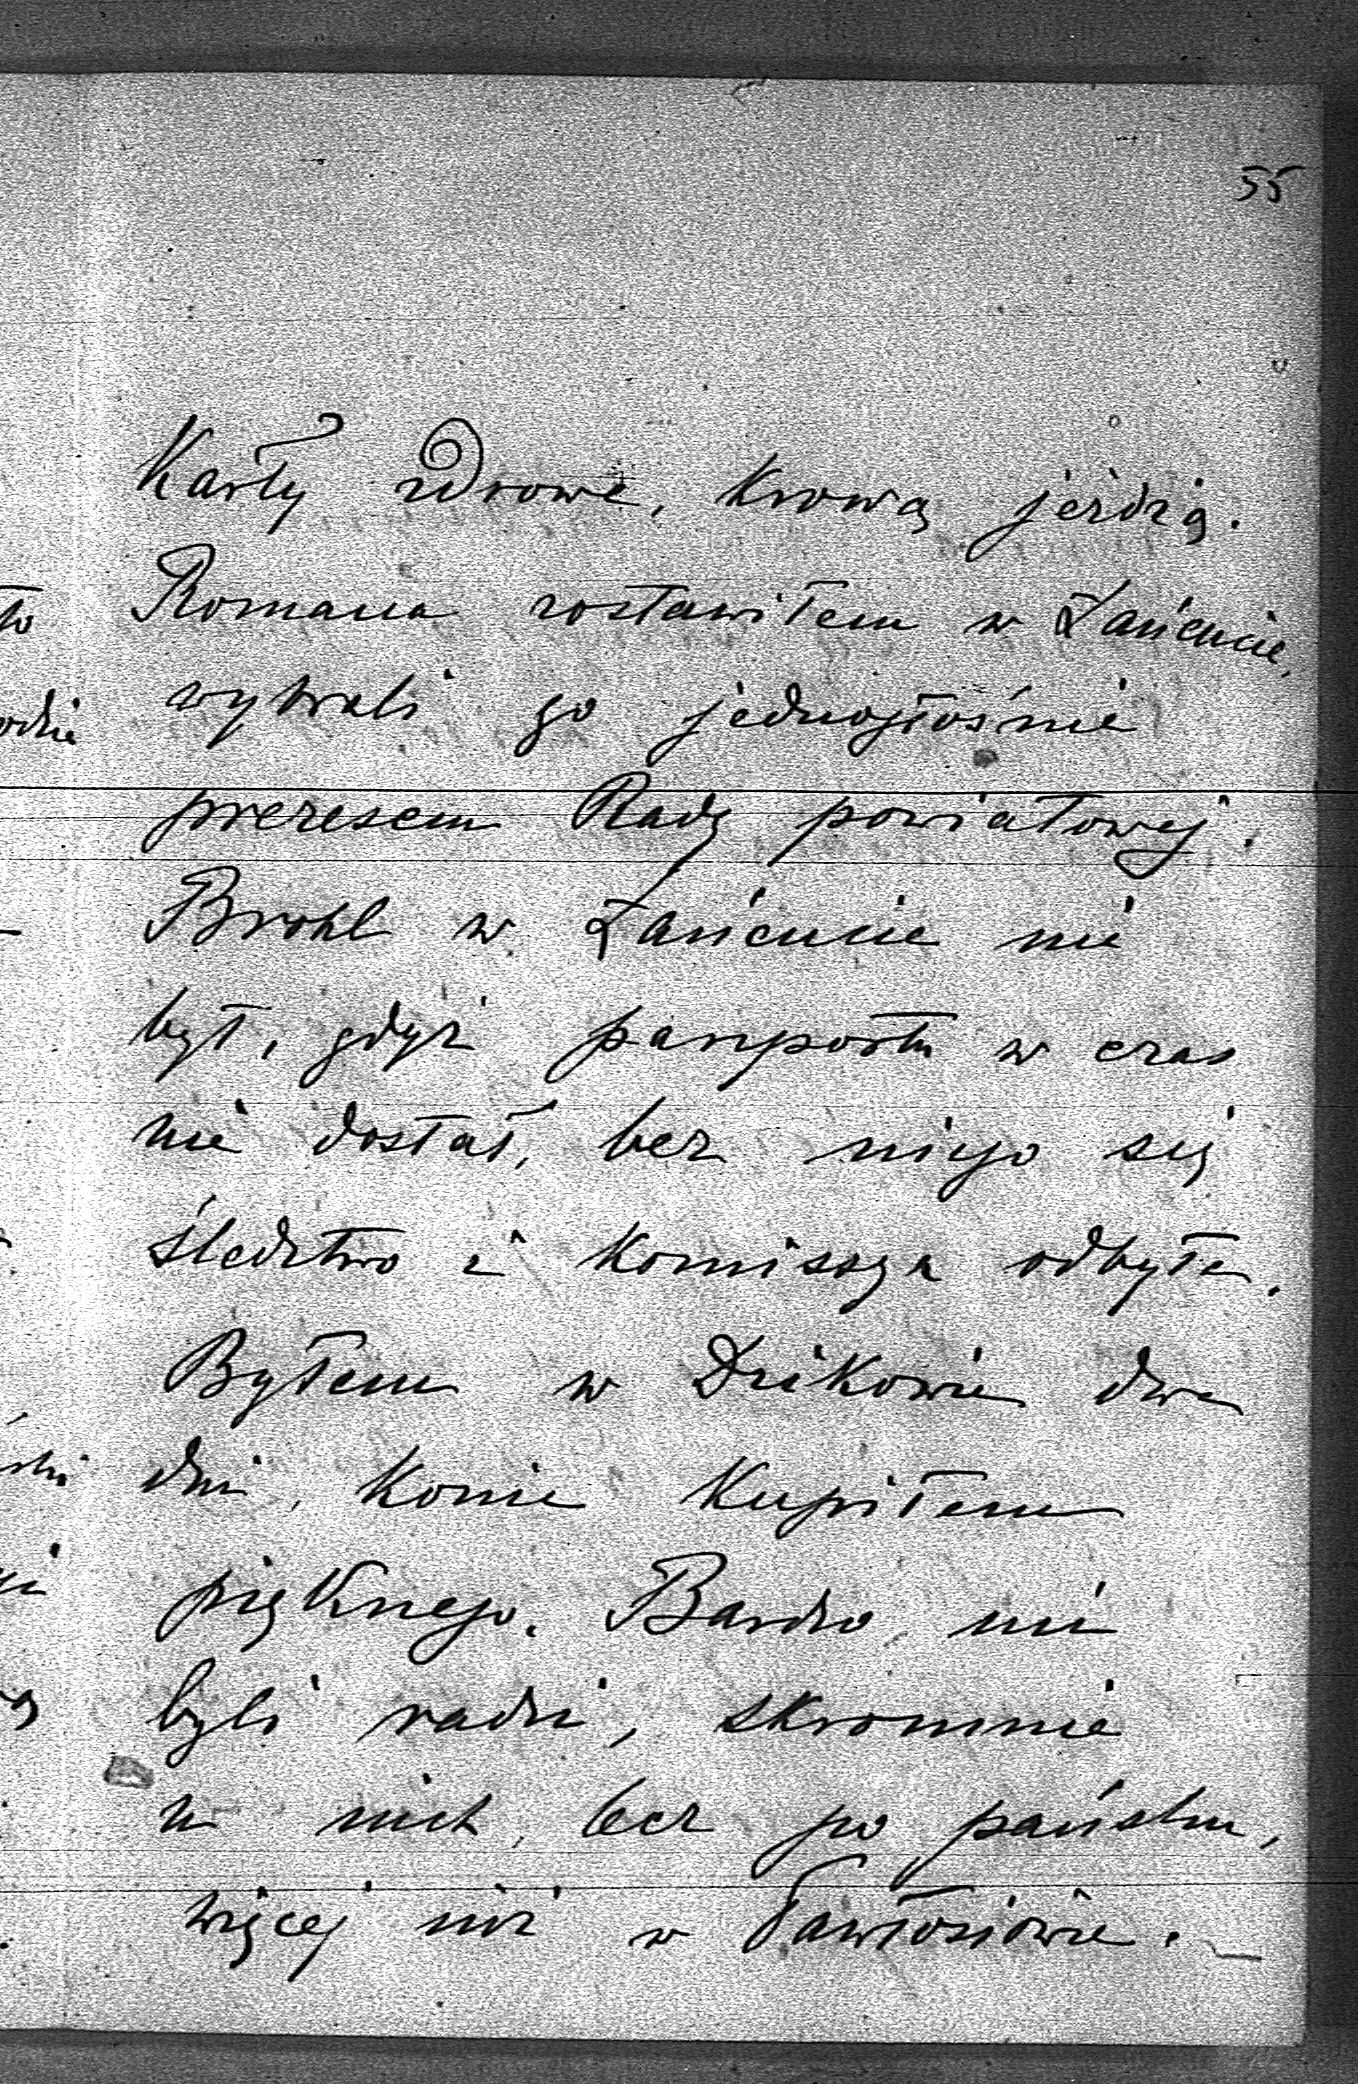 55
Karły zdrowe, krową jeżdżą.
Romana zostawiłem w Łańcucie,
wybrali go jednogłośnie
prezesem Rady powiatowej.
w Łańcucie nie
był, gdyż paszportu w czas
nie dostał, bez niego się
śledztwo i komissya odbyła.
Byłem w Dzikowie dwa
dni, konia kupiłem
pięknego. Bardzo mi
byli radzi, skromnie
u nich, lecz po pańsku,
więcej niż w Pawłosiowie. —